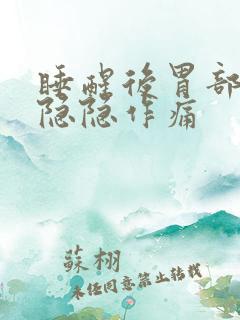 睡醒後胃部
隐隐作痛
蘇栩
未经同意禁止转载